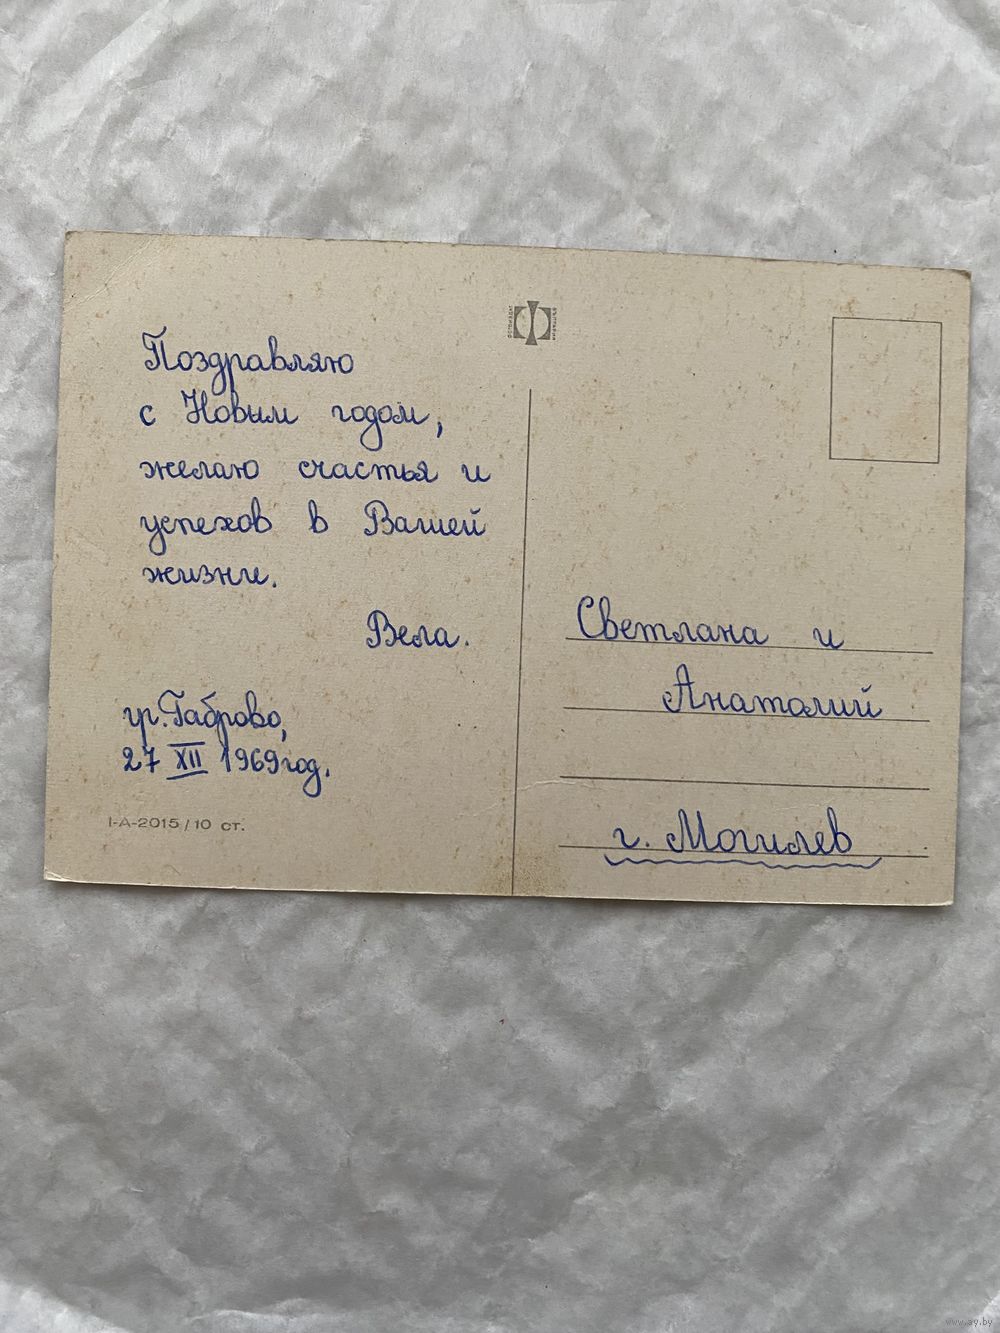 Поздравляю
с Новым годом,
желаю счастья и
успехов в Вашей
жизни.
Вела.
гр. Габрово,
27 XII 1969 год.
I-A-2015/10 ст.
Светлана и
Анатолий
г. Могилев
www.ay.by